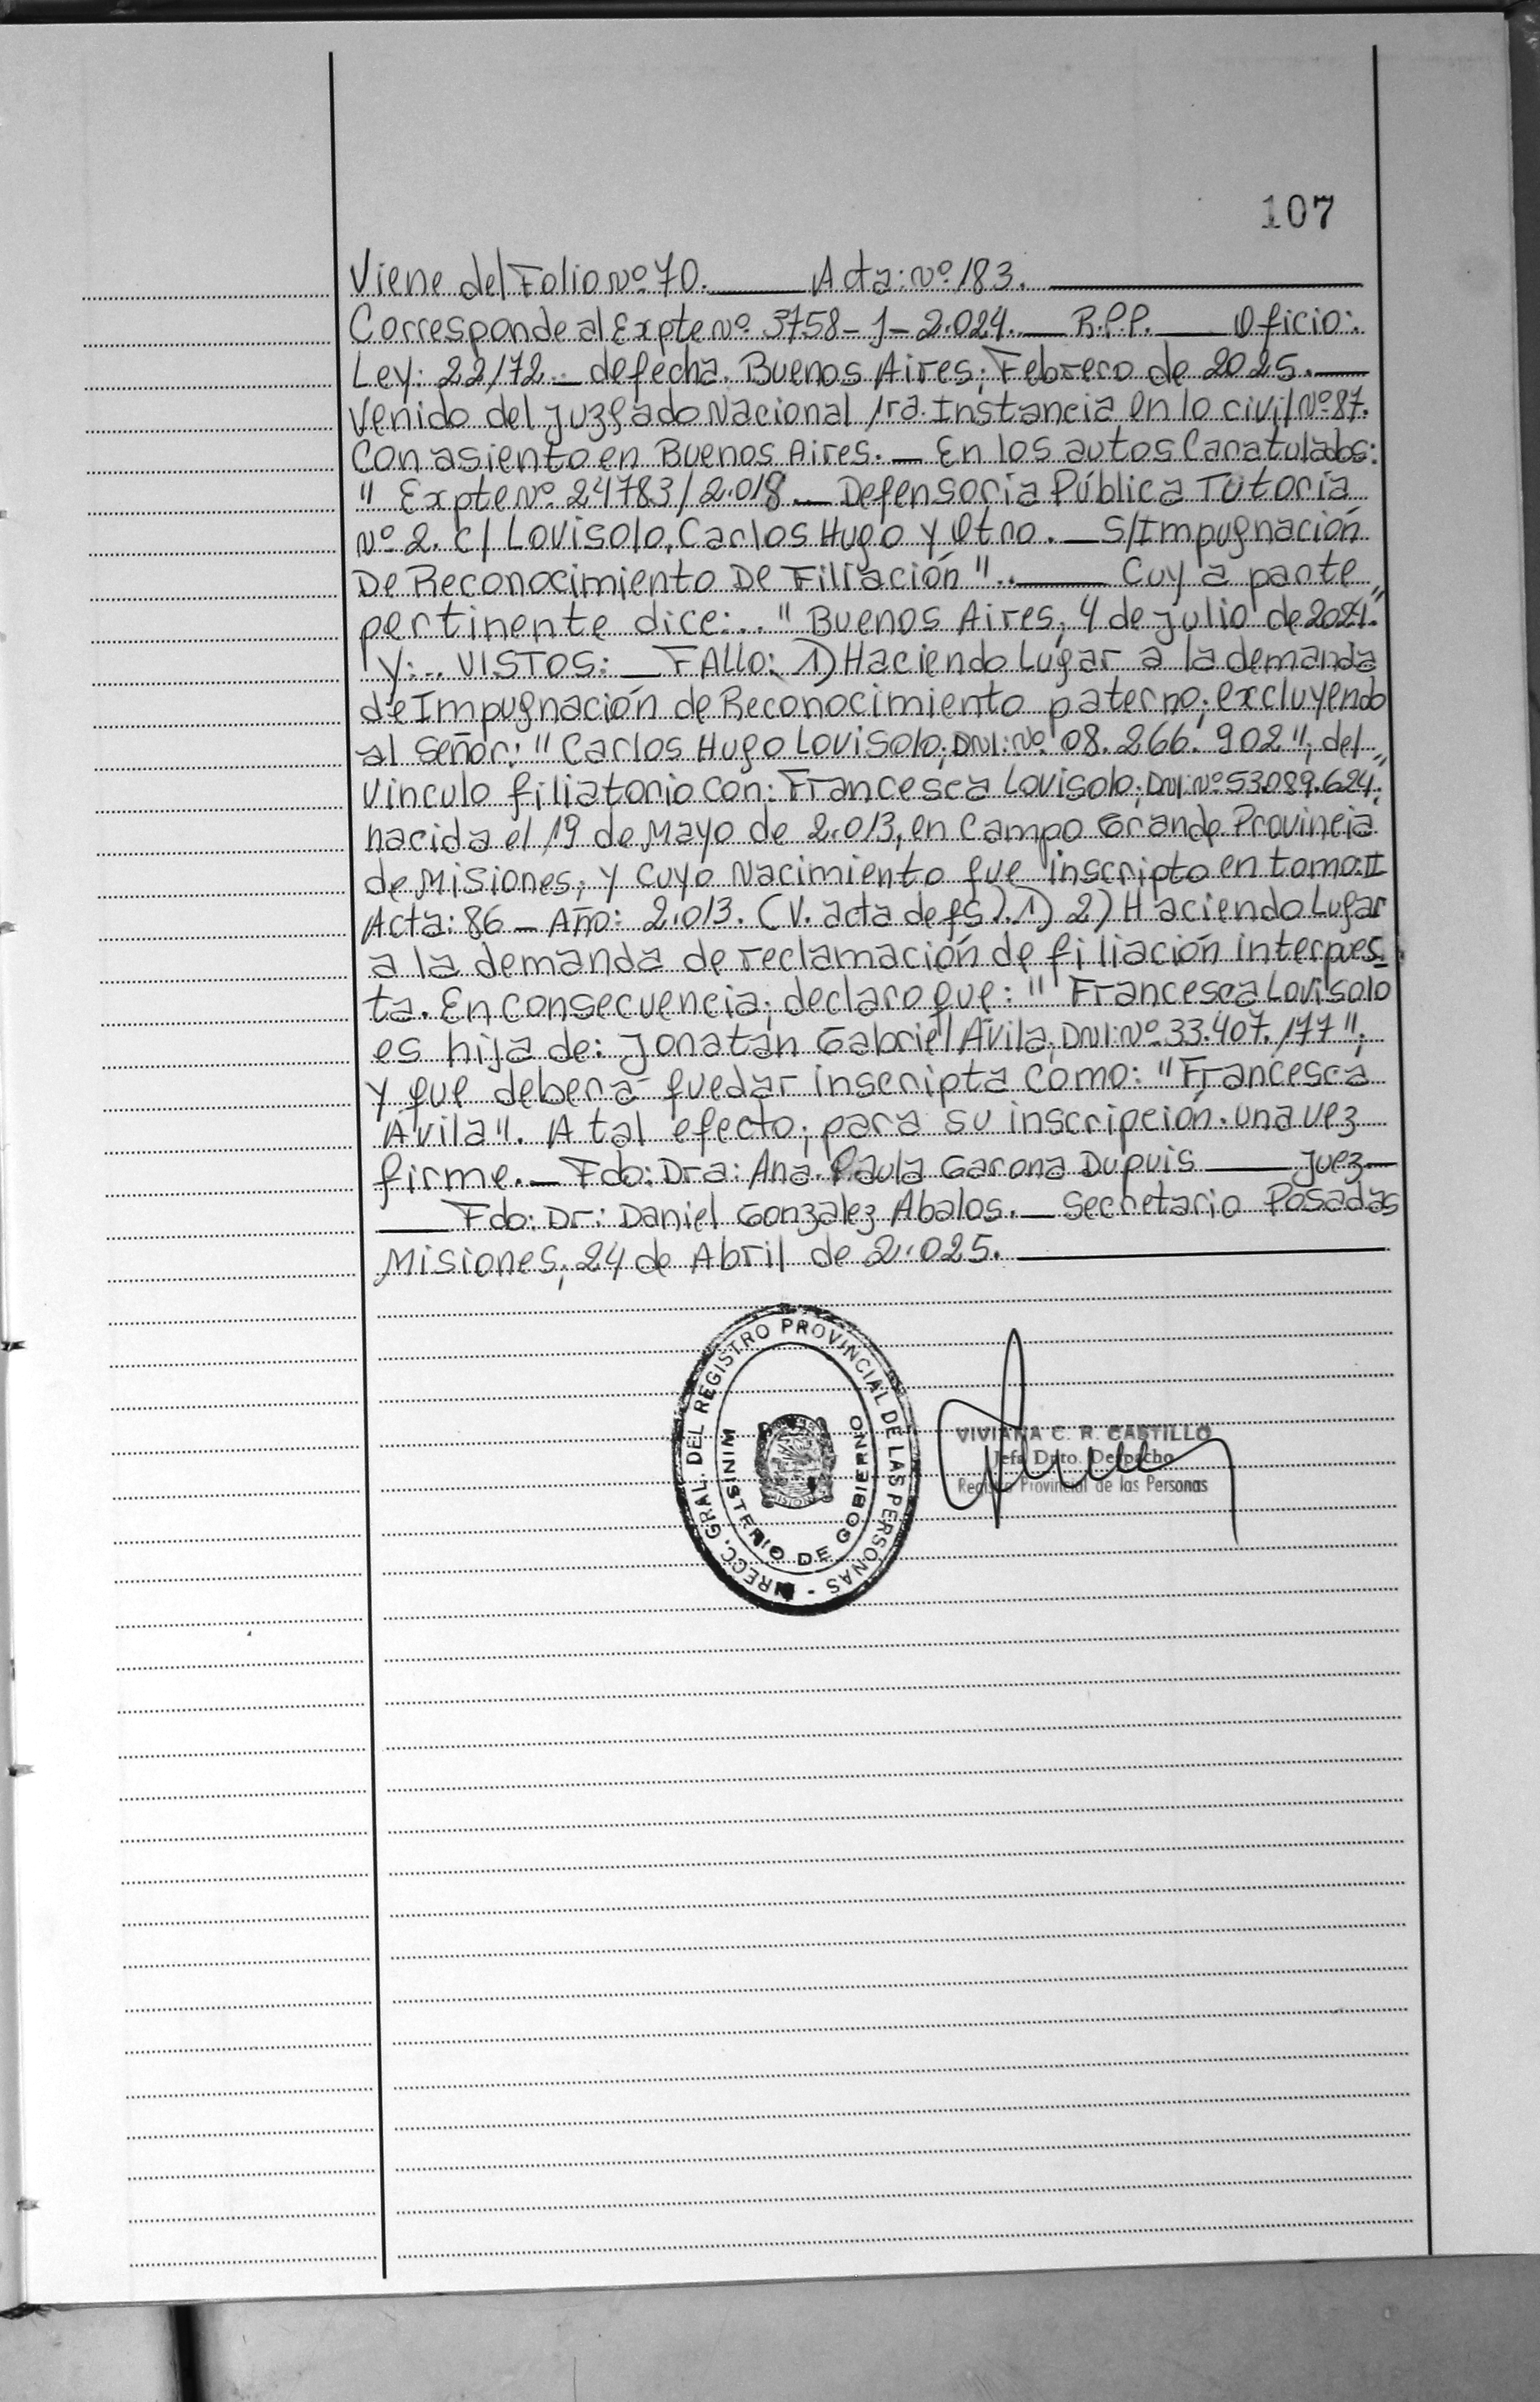 107
Viene del Folio Nº 70. Acta: Nº 183.
Corresponde al Expte Nº 3758-J-2.024. R.P.P. Oficio:
Ley: 22172 de fecha. Buenos Aires; Febrero de 2025.
Venido del Juzgado Nacional 1ra. Instancia en lo civil Nº 87.
Con asiento en Buenos Aires. En los autos Caratulados:
" Expte Nº 24783/2.018 Defensoria Pública Tutoria
Nº 2. c/ Lovisolo, Carlos Hugo y Otro. S/Impugnación
De Reconocimiento De Filiación".. Cuya parte
pertinente dice:.. "Buenos Aires; 4 de julio de 2024."
Y:.. VISTOS: FAllo: 1) Haciendo Lugar a la demanda
de Impugnación de Reconocimiento paterno; excluyendo
al Señor: "Carlos Hugo Lovisolo; DNI: Nº 08.266.902", del
Vinculo filiatorio con: Francesca Lovisolo; DNI: Nº 53.089.624";
nacida el 19 de Mayo de 2.013, en Campo Grande Provincia
de Misiones; y cuyo Nacimiento fue inscripto en tomo: II
Acta: 86 - Año: 2.013. (V. acta de fs). 1) 2) Haciendo Lugar
a la demanda de reclamación de filiación interpues-
ta. En Consecuencia; declaro que: "Francesca Lovisolo
es hija de: Jonatán Gabriel Avila; DNI: Nº 33.407.177";
y que deberá quedar inscripta como: "Francesca
Avila". A tal efecto; para su inscripción. una vez
firme. Fdo: Dra: Ana Paula Garona Dupuis Juez
Fdo: Dr: Daniel Gonzalez Abalos. Secretario Posadas
Misiones; 24 de Abril de 2.025.
DIRECC. GRAL. DEL REGISTRO PROVINCIAL DE LAS PERSONAS -
MINISTERIO DE GOBIERNO
VIVIANA C. R. CASTILLO
Jefa Dpto. Despacho
Registro Provincial de las Personas